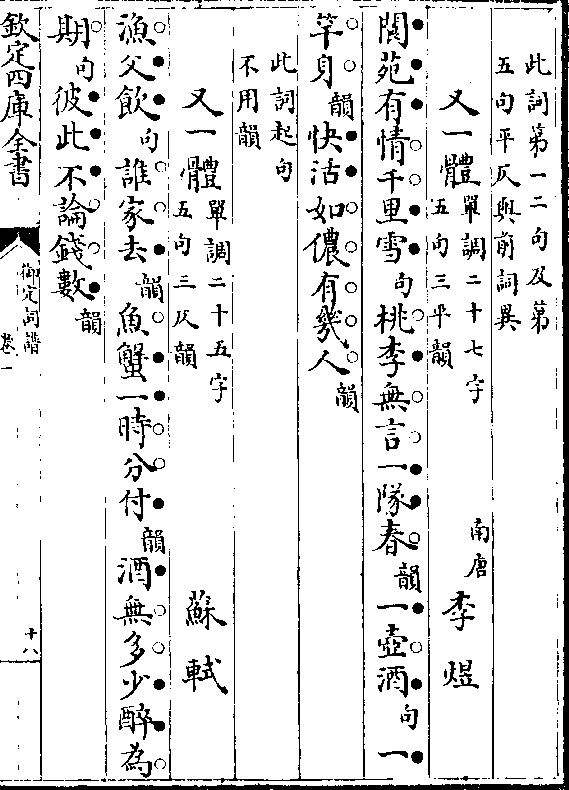 此詞第一二句及第
五句平仄與前詞異
又一體 單調二十七字
五句三平韻 南唐 李煜
閬苑有情千里雪句桃李無言一隊春韻一壺酒句一
竿身韻快活如儂有幾人韻
此詞起句
不用韻
又一體 單調二十五字
五句三仄韻 蘇軾
漁父飲句誰家去韻魚蟹一時分付韻酒無多少醉為
期句彼此不論錢數韻
欽定四庫全書
御定詞譜
卷一
十八